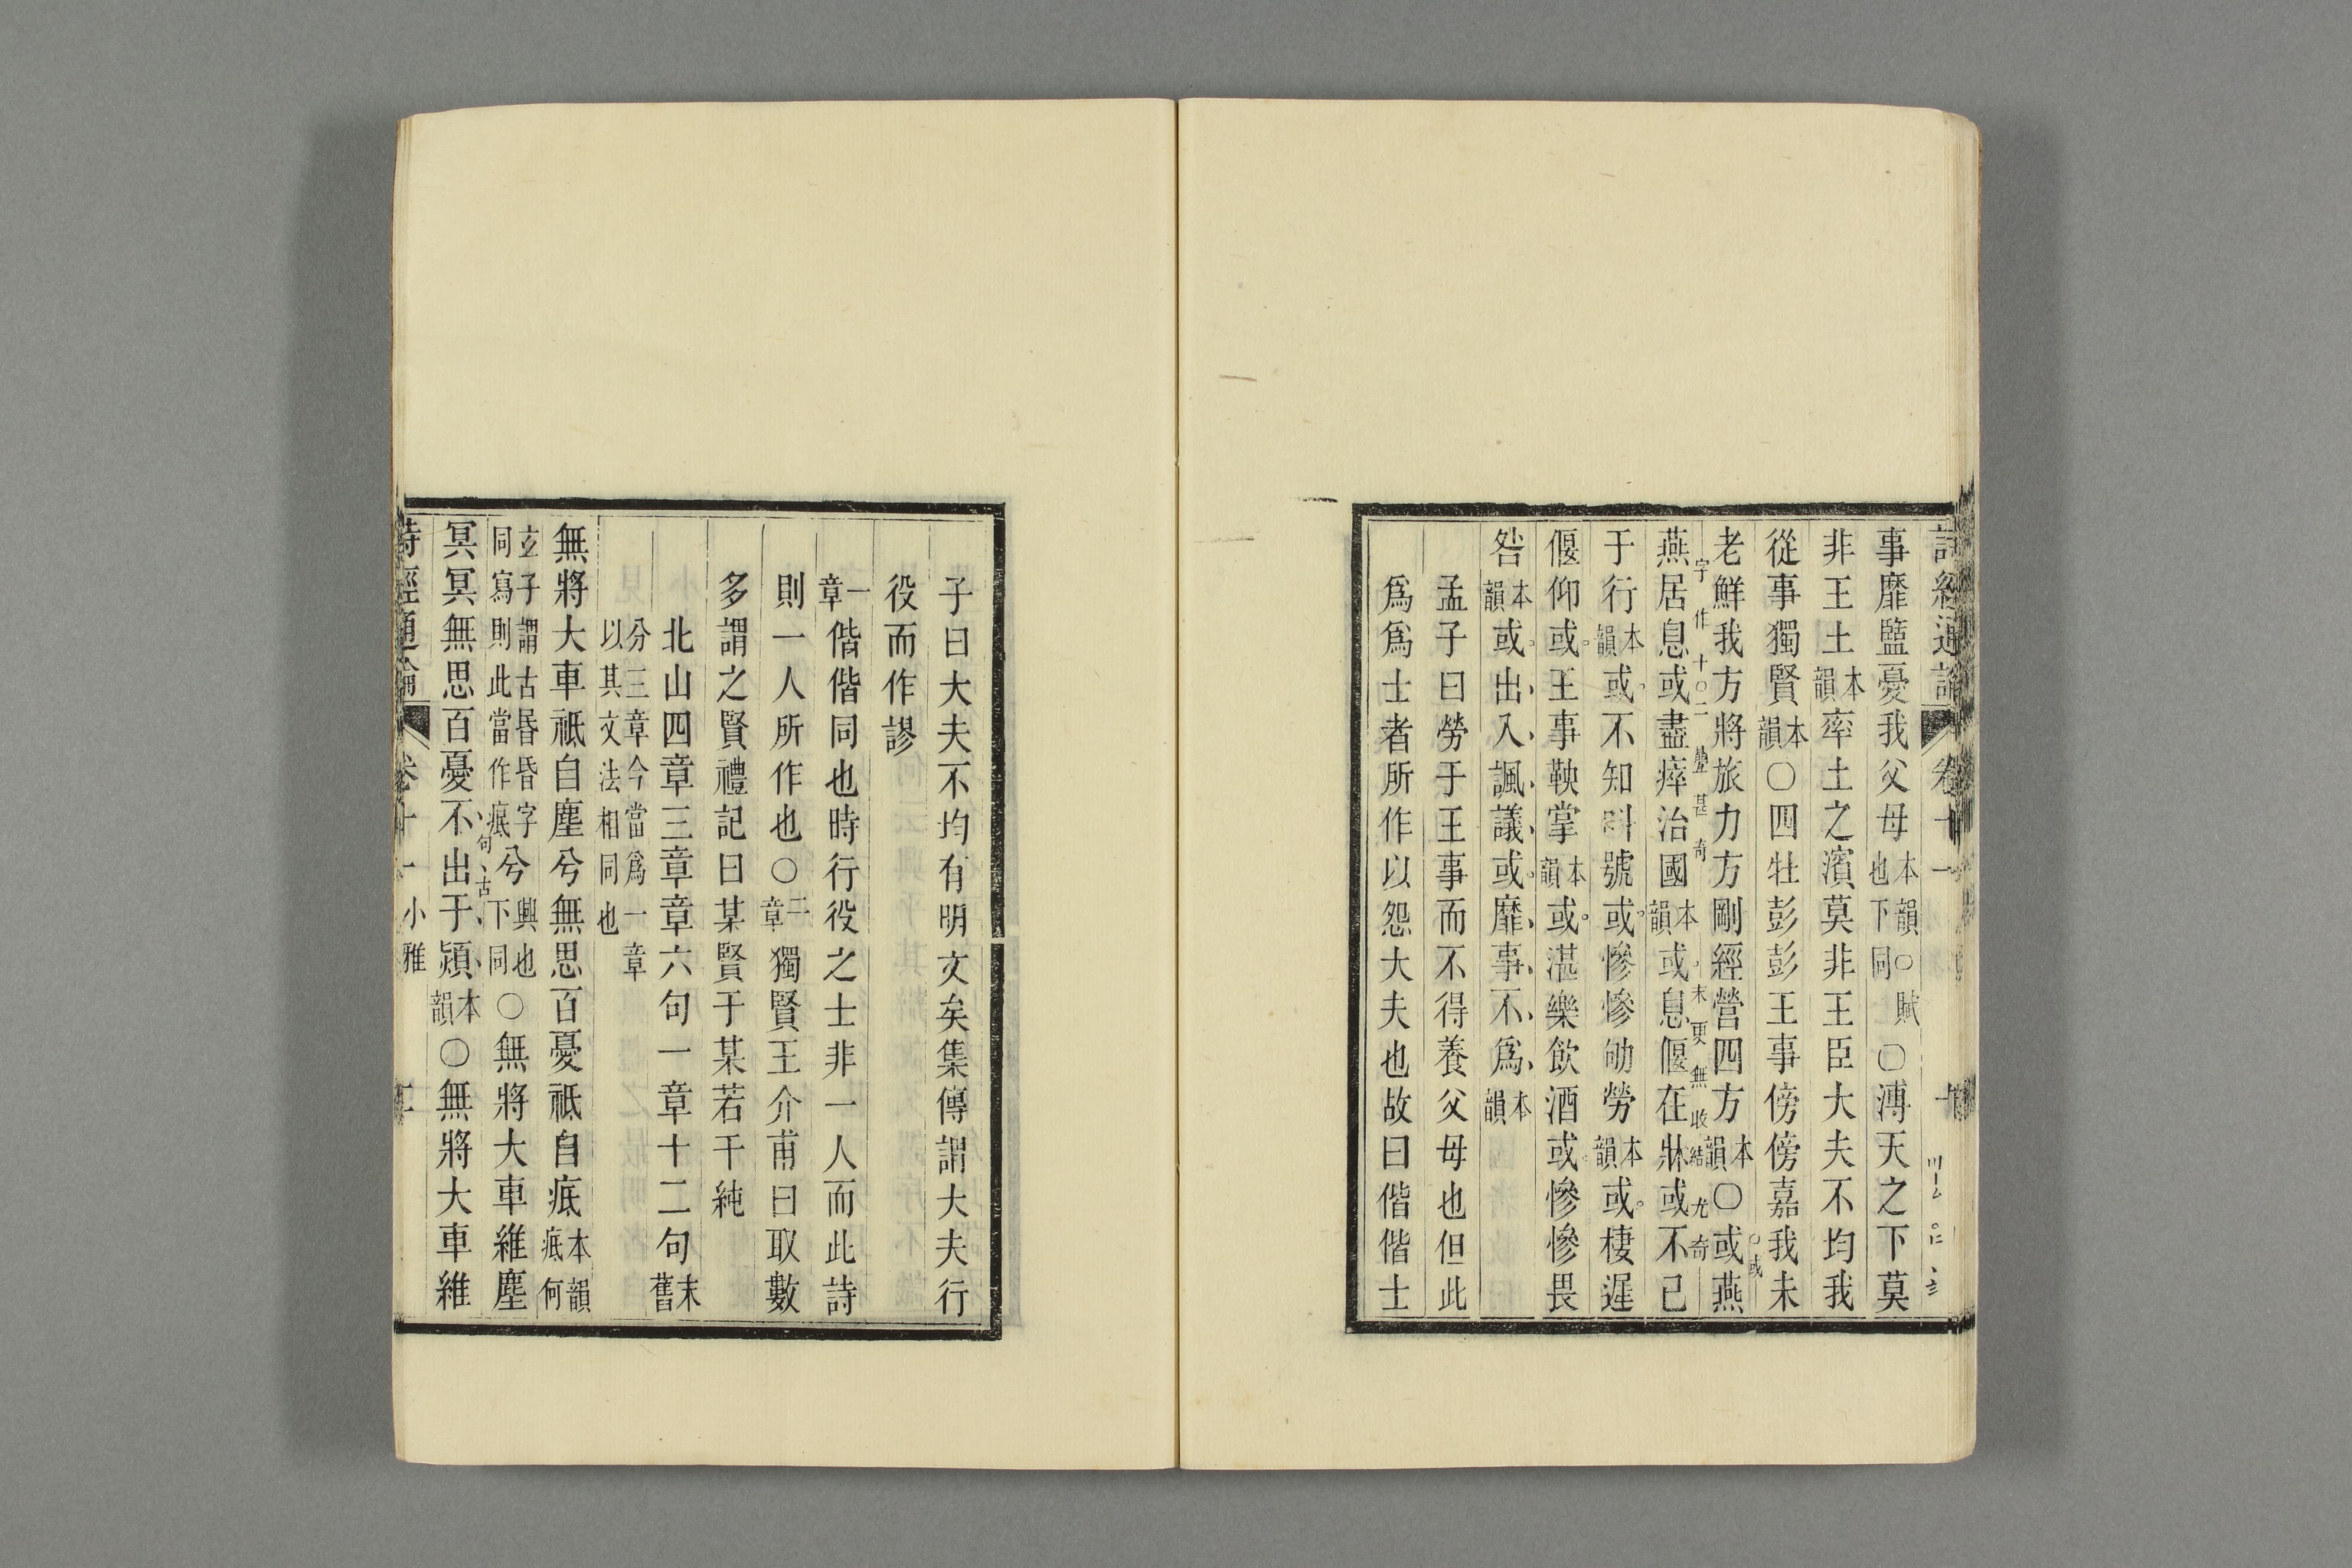 詩經通論 卷十一
事靡盬憂我父母本韻○賦也下同○溥天之下莫
非王土本韻率土之濱莫非王臣大夫不均我
從事獨賢本韻○四牡彭彭王事傍傍嘉我未
老鮮我方將旅力方剛經營四方本韻○或燕
○或字作十○二疊甚奇末更無收結尤奇
燕居息或盡瘁治國本韻或息偃在牀或不已
于行本韻或不知叫號或慘慘劬勞本韻或棲遲
偃仰或王事鞅掌本韻或湛樂飲酒或慘慘畏
咎本韻或出入諷議或靡事不爲本韻
孟子曰勞于王事而不得養父母也但此
爲爲士者所作以怨大夫也故曰偕偕士
子曰大夫不均有明文矣集傳謂大夫行
役而作謬
一章偕偕同也時行役之士非一人而此詩
則一人所作也○二章獨賢王介甫曰取數
多謂之賢禮記曰某賢于某若干純
北山四章三章章六句一章十二句末舊
分三章今當爲一章以其文法相同也
無將大車祗自塵兮無思百憂祗自疧本韻疧何
玄子謂古昬昏字同寫則此當作痻兮興也下同○無將大車維塵
句、古
冥冥無思百憂不出于熲本韻○無將大車維
詩經通論 卷十一 小雅